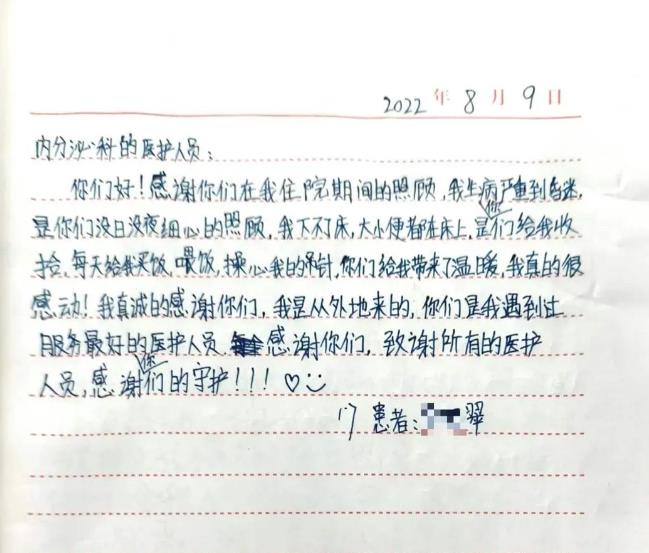 2022年8月9日
内分泌科的医护人员：
你们好！感谢你们在我住院期间的照顾，我生病严重到昏迷，
是你们没日没夜细心的照顾，我下不了床，大小便都在床上，是你们给我收
拾，每天给我买饭，喂饭，操心我的吊针，你们给我带来了温暖，我真的很
感动！我真诚的感谢你们，我是从外地来的，你们是我遇到过
服务最好的医护人员，感谢你们，致谢所有的医护
人员，感谢你们的守护！！！♡
17 患者：翠